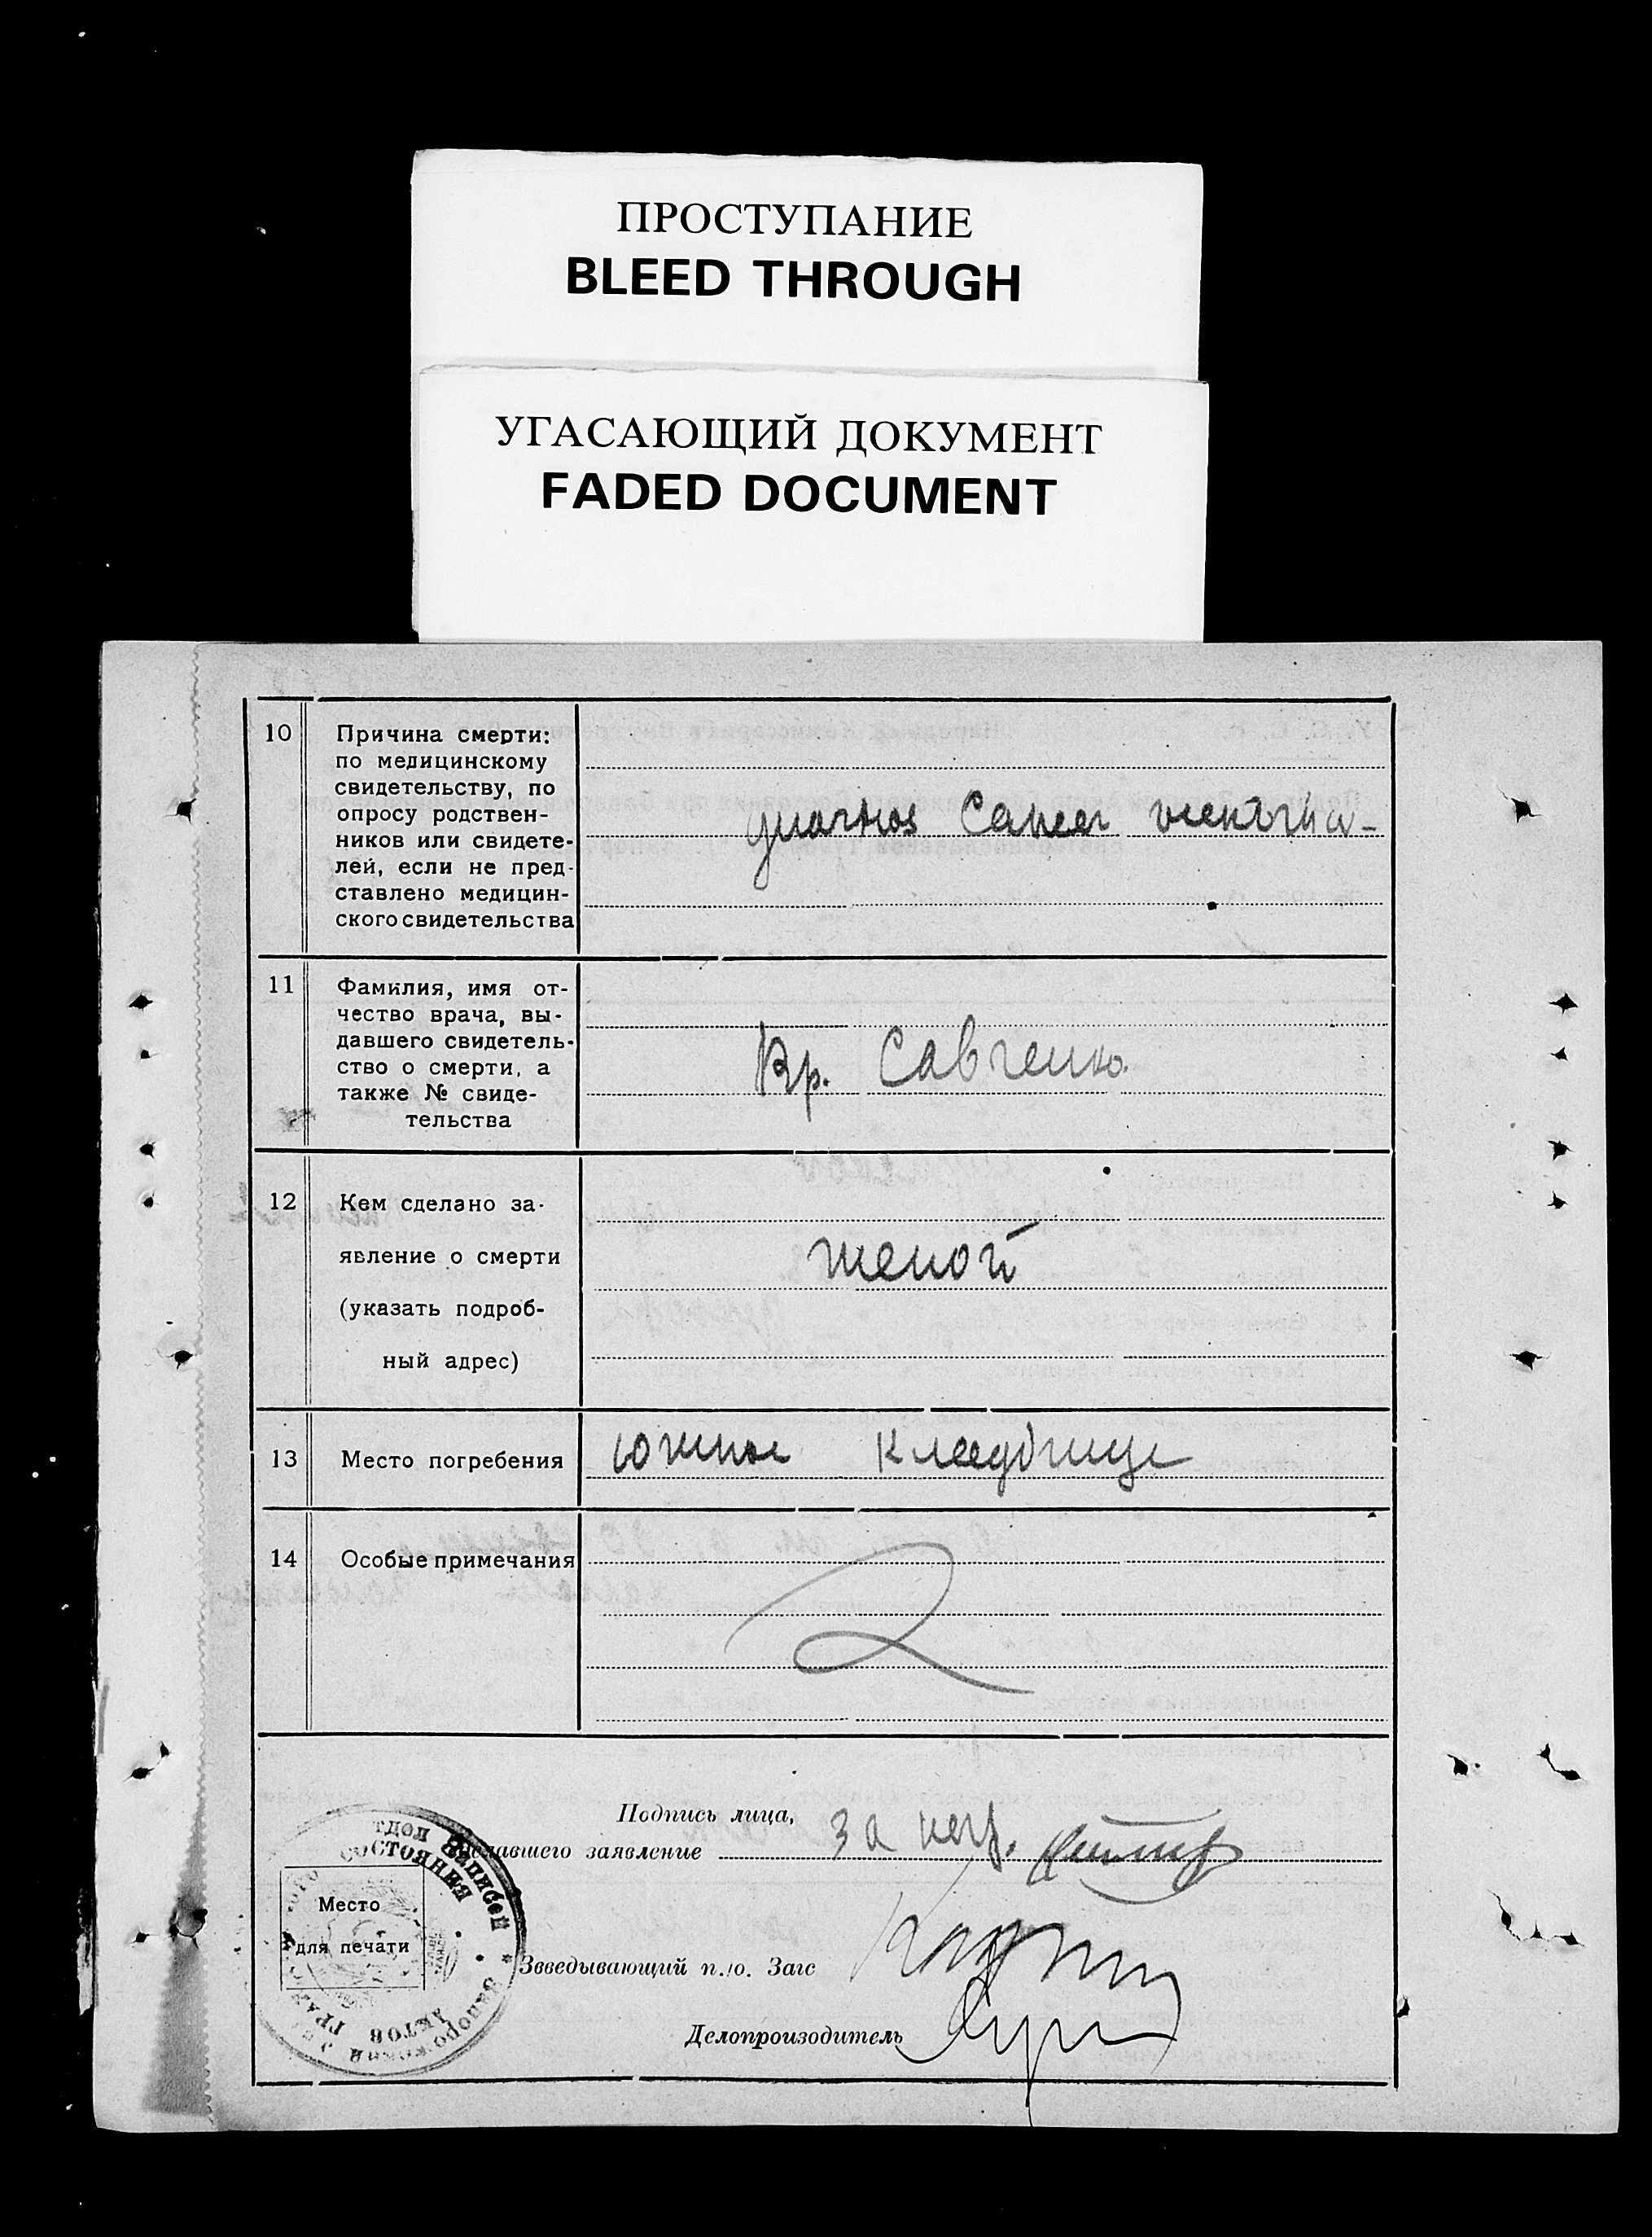 ПРОСТУПАНИЕ
BLEED THROUGH
УГАСАЮЩИЙ ДОКУМЕНТ
FADED DOCUMENT
10
Причина смерти:
по медицинскому
свидетельству, по
опросу родствен-
ников или свидете-
лей, если не пред-
ставлено медицин-
ского свидетельства
Cancer
11
Фамилия, имя от-
чество врача, вы-
давшего свидетель-
ство о смерти, а
также № свиде-
тельства
Вр. Савченко
12
Кем сделано за-
явление о смерти
(указать подроб-
ный адрес)
женой
13
Место погребения
Южное Кладбище
14
Особые примечания
Подпись лица,
сделавшего заявление
за негр.
Место
для печати
Зведывающий п./о. Загс
Делопроизодитель